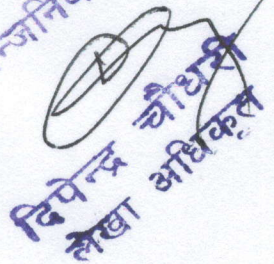 दिपेन्द्र चौधरी
लेखा अधिकृत